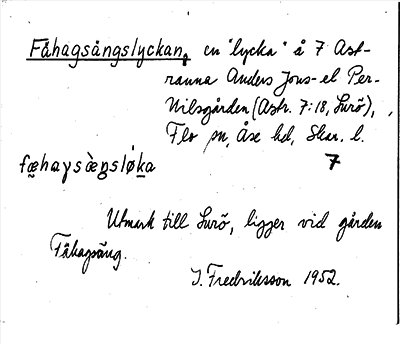 Fåhagsängslyckan, en "lycka" å 7 Ast-
ranna Anders Jons- el Per-
Nilsgården (Astr. 7:18, Surö),
Flo sn, Åse hd, Skar. l.
7
Utmark till Surö, ligger vid gården
Fåhagsäng.
I. Fredriksson 1952.